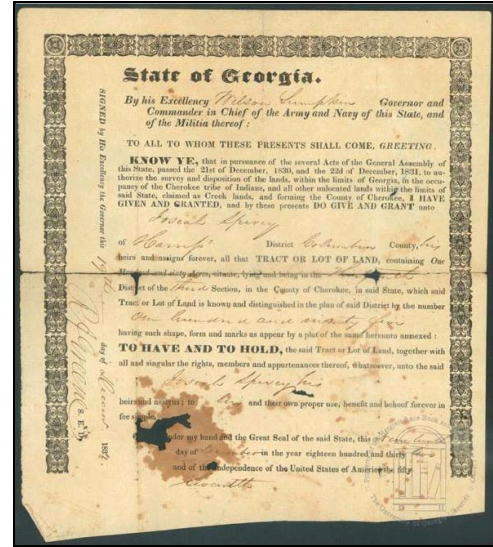 State of Georgia.
By his Excellency Wilson Lumpkin Governor and
Commander in Chief of the Army and Navy of this State, and
of the Militia thereof :
TO ALL TO WHOM THESE PRESENTS SHALL COME, GREETING.
KNOW YE, that in pursuance of the several Acts of the General Assembly of
this State, passed the 21st of December, 1830, and the 22d of December, 1831, to au-
thorise the survey and disposition of the lands, within the limits of Georgia, in the occu-
pancy of the Cherokee tribe of Indians, and all other unlocated lands within the limits of
said State, claimed as Creek lands, and forming the County of Cherokee, I HAVE
GIVEN AND GRANTED, and by these presents DO GIVE AND GRANT unto
Josiah Spivey
of Hamp's District Columbia County, his
heirs and assigns forever, all that TRACT OR LOT OF LAND, containing One
Hundred and sixty Acres, situate, lying and being in the
District of the third Section, in the County of Cherokee, in said State, which said
Tract or Lot of Land is known and distinguished in the plan of said District by the number
One hundred and ninety
having such shape, form and marks as appear by a plat of the same hereunto annexed :
TO HAVE AND TO HOLD, the said Tract or Lot of Land, together with
all and singular the rights, members and appurtenances thereof, whatsoever, unto the said
Josiah Spivey his
heirs and assigns; to his and their own proper use, benefit and behoof forever in
fee simple.
under my hand and the Great Seal of the said State, this
day of December in the year eighteen hundred and thirty two
and of the Independence of the United States of America the fifty
Seventh
SIGNED by His Excellency the Governor this 19th
day of 1832
S. E. D.